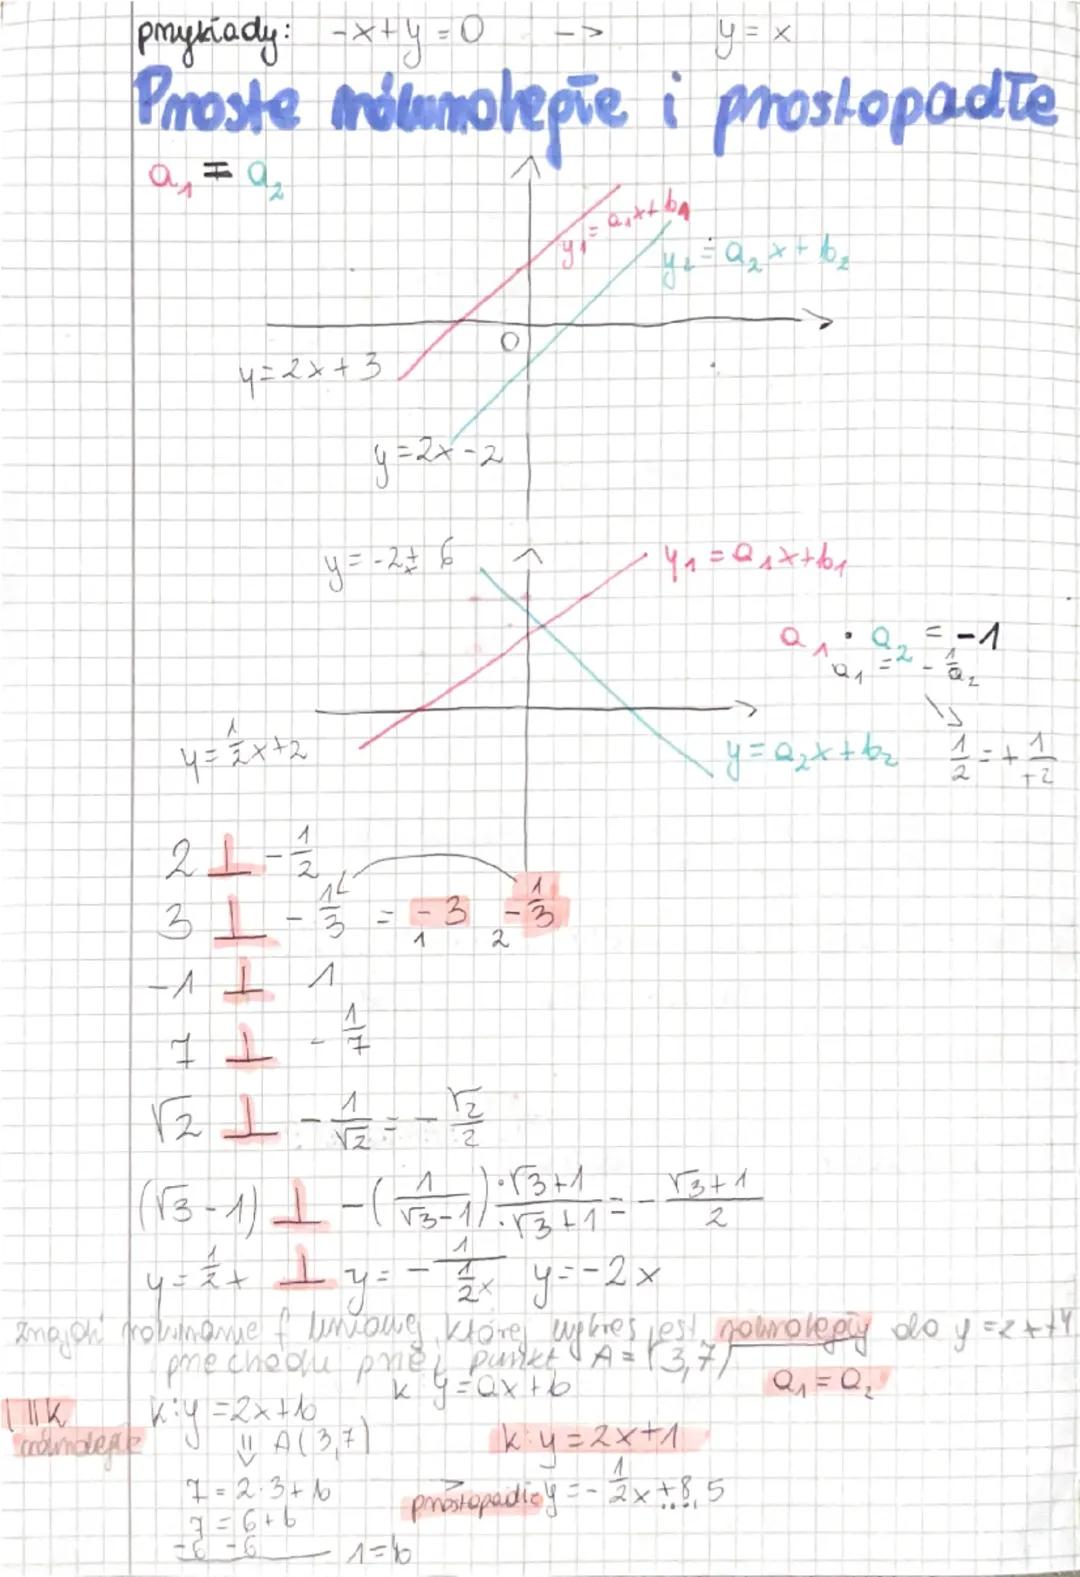 przykłady: -x+y=0 -> y=x
Proste równoległe i prostopadłe
a₁ = a₂
y₁ = a₁x+b₁
y₂ = a₂x+b₂
0
y=2x+3
y=2x-2
y=-2x+6
y₁=a₁x+b₁
a₁ · a₂ = -1
a₁ = -1/a₂
y=1/2x+2
y=a₂x+b₂
1/2=+1/+2
2 ⊥ -1/2
3 ⊥ -1/3 = -3 -1/3
1 2
-1 ⊥ 1
7 ⊥ -1/7
√2 ⊥ -1/√2 = -√2/2
(√3-1) ⊥ -(1/√3-1) ·√3+1/·√3+1 = -√3+1/2
y=1/2x ⊥ y=-1/1/2x y=-2x
znajdź równanie f liniowej, której wykres jest równoległy do y=2x+4
przechodzi przez punkt A=(3,7)
k y=ax+b
a₁=a₂
l || k
równoległe
k:y=2x+b
⇓ A(3,7)
k:y=2x+1
7=2·3+b
prostopadłe y=-1/2x+8,5
7=6+b
-6 -6
1=b